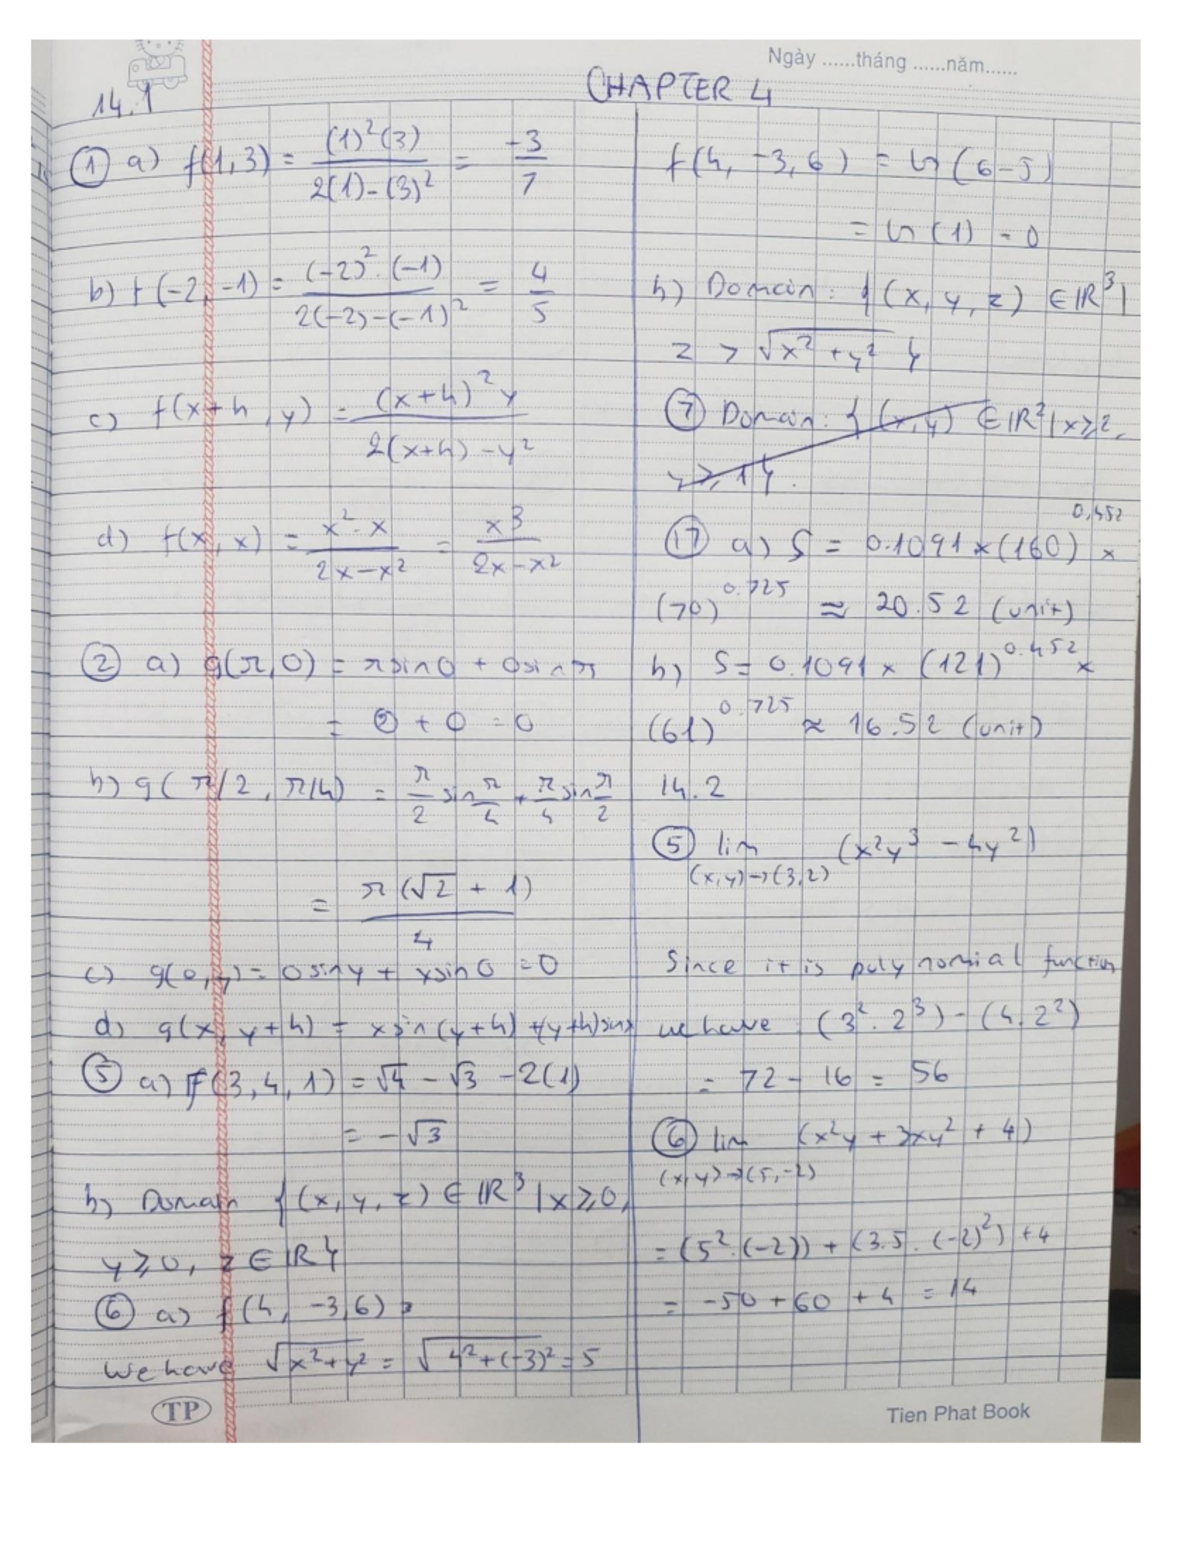 Ngày ......tháng ......năm......
CHAPTER 4
14.1
① a) f(1,3) = (1)²(3) / 2(1)-(3)² = -3/7
b) f(-2,-1) = (-2)².(-1) / 2(-2)-(-1)² = 4/5
c) f(x+h, y) = (x+h)²y / 2(x+h)-y²
d) f(x,x) = x².x / 2x-x² = x³ / 2x-x²
② a) g(π,0) = π sin0 + 0sinπ
= 0 + 0 = 0
b) g(π/2, π/4) = π/2 sin π/4 + π/4 sin π/2
= π(√2 + 1) / 4
c) g(0,y) = 0siny + ysin0 = 0
d) g(x, y+h) = xsin(y+h) + (y+h)sinx
⑤ a) F(3,4,1) = √4 - √3 - 2(1)
= -√3
b) Domain {(x,y,z) ∈ ℝ³ | x ≥ 0,
y ≥ 0, z ∈ ℝ}
⑥ a) f(4, -3,6)
We have √x²+y² = √4²+(-3)² = 5
f(4, -3,6) = ln(6-5)
= ln(1) = 0
b) Domain: {(x,y,z) ∈ ℝ³ |
z > √x²+y² }
⑦ Domain: {(x,y) ∈ ℝ² | x ≥ 2,
y ≥ 1}.
⑰ a) S = 0.1091 × (160)^0.452 ×
(70)^0.725 ≈ 20.52 (unit)
b) S = 0.1091 × (121)^0.452 ×
(61)^0.725 ≈ 16.52 (unit)
14.2
⑤ lim (x²y³ - 4y²)
(x,y)→(3,2)
Since it is polynomial function
we have (3².2³) - (4.2²)
= 72 - 16 = 56
⑥ lim (x²y + 3xy² + 4)
(x,y)→(5,-2)
= (5².(-2)) + (3.5.(-2)²) + 4
= -50 + 60 + 4 = 14
TP
Tien Phat Book